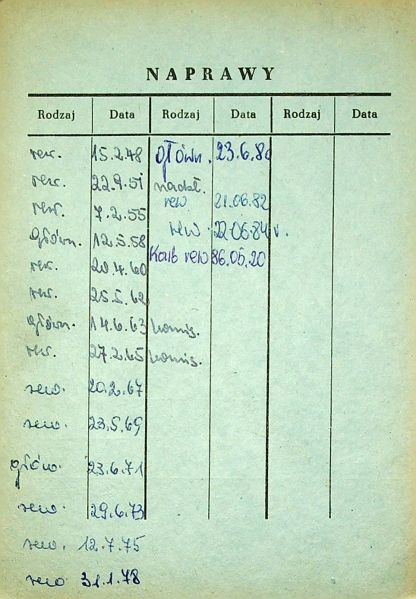 NAPRAWY
Rodzaj Data Rodzaj Data Rodzaj Data
rew. 15.2.48 główn. 23.6.80
rew. 22.9.51 nadzł.
rew. 7.2.55 rew 21.06.82
główn. 12.5.58 rew. 22.06.84 r.
rew. 20.4.60 Komb rew 86.05.20
rew. 25.5.62
główn. 14.6.63 komis.
rew. 27.2.65 komis.
rew. 20.2.67
rew. 23.5.69
główn. 23.6.71
rew. 29.6.73
rew. 12.7.75
rew 31.1.78